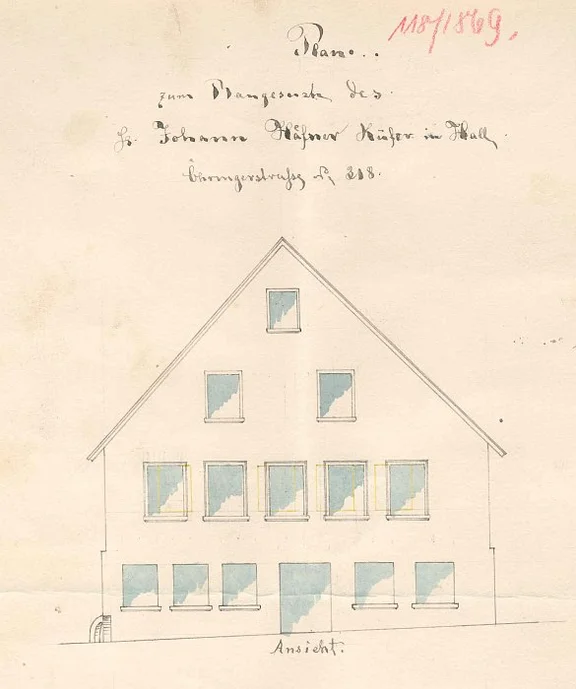 118/1869.
Plan
zum Baugesuche des
H. Johann Häfner Küfer in Hall
Öhringerstrasse N. 318.
Ansicht.